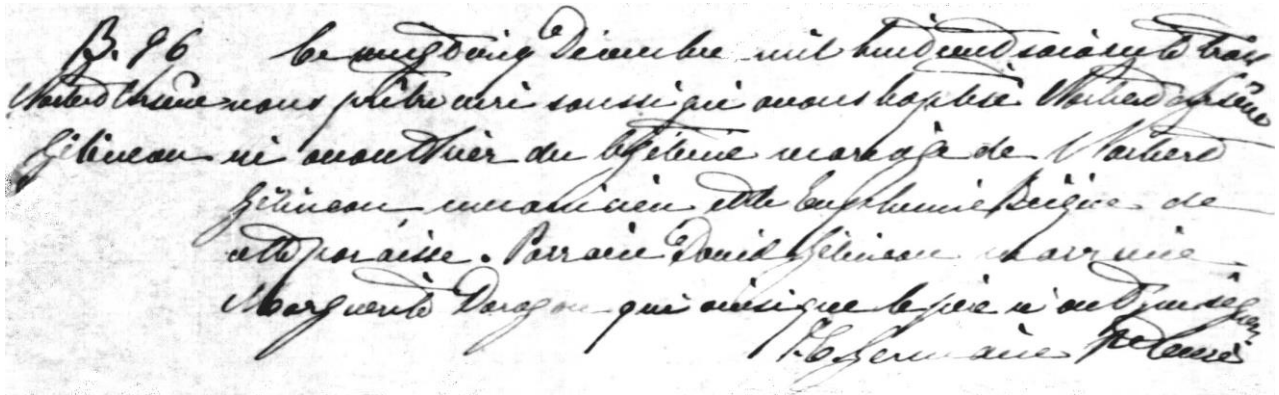 B. 96 Le vingt cinq Décembre mil huit cent soixante trois
Norbert Arsène nous prêtre curé soussigné avons baptisé Norbert Arsène
Gélineau né avant hier du légitime mariage de Norbert
Gélineau mécanicien et de Euphémie Beïque de
cette paroisse. Parrain David Gélineau marraine
Marguerite Daragon qui ainsi que le père n'ont pu signer
Germain Ptre Curé